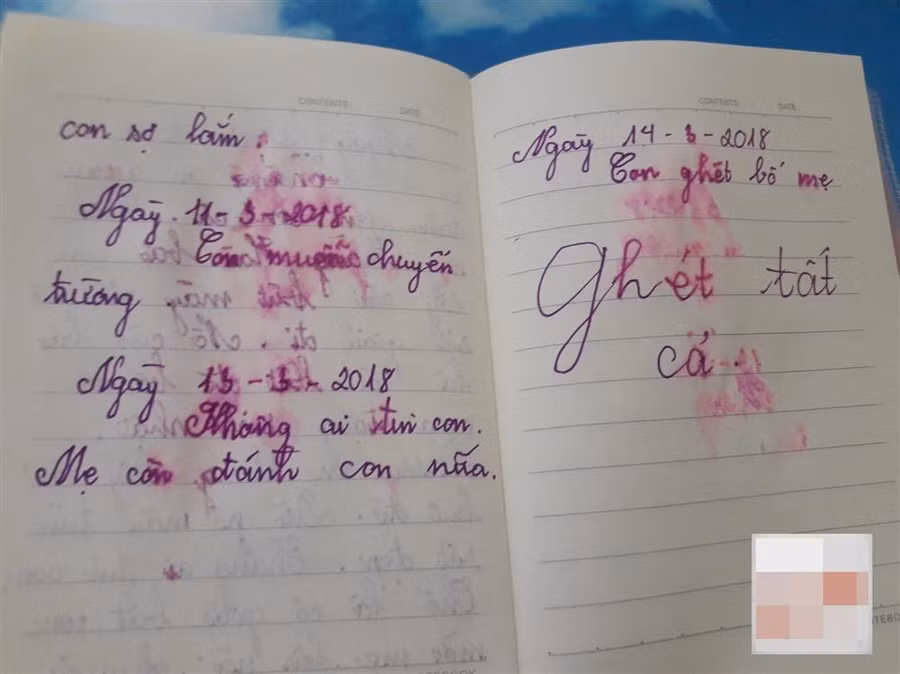 CONTENTS DATE
con sợ lắm.
Ngày 11-3-2018
Con muốn chuyển
trường
Ngày 13-3-2018
Không ai tin con.
Mẹ còn đánh con nữa.
CONTENTS DATE
Ngày 14-3-2018
Con ghét bố mẹ
Ghét tất
cả.